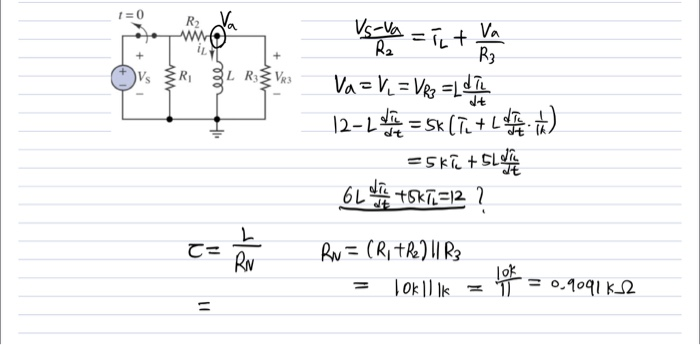 t=0
R₂
Va
iL
+
Vs
−
R₁
L
R₃
+
VR3
−
(Vs-Va)/R₂ = iL + Va/R₃
Va = VL = VR3 = L diL/dt
12-L diL/dt = 5k(iL + L diL/dt · 1/1k)
= 5k iL + 5L diL/dt
6L diL/dt + 5k iL = 12 ?
τ = L/RN
RN = (R₁+R₂)||R₃
= 10k||1k = 10k/11 = 0.9091 kΩ
=